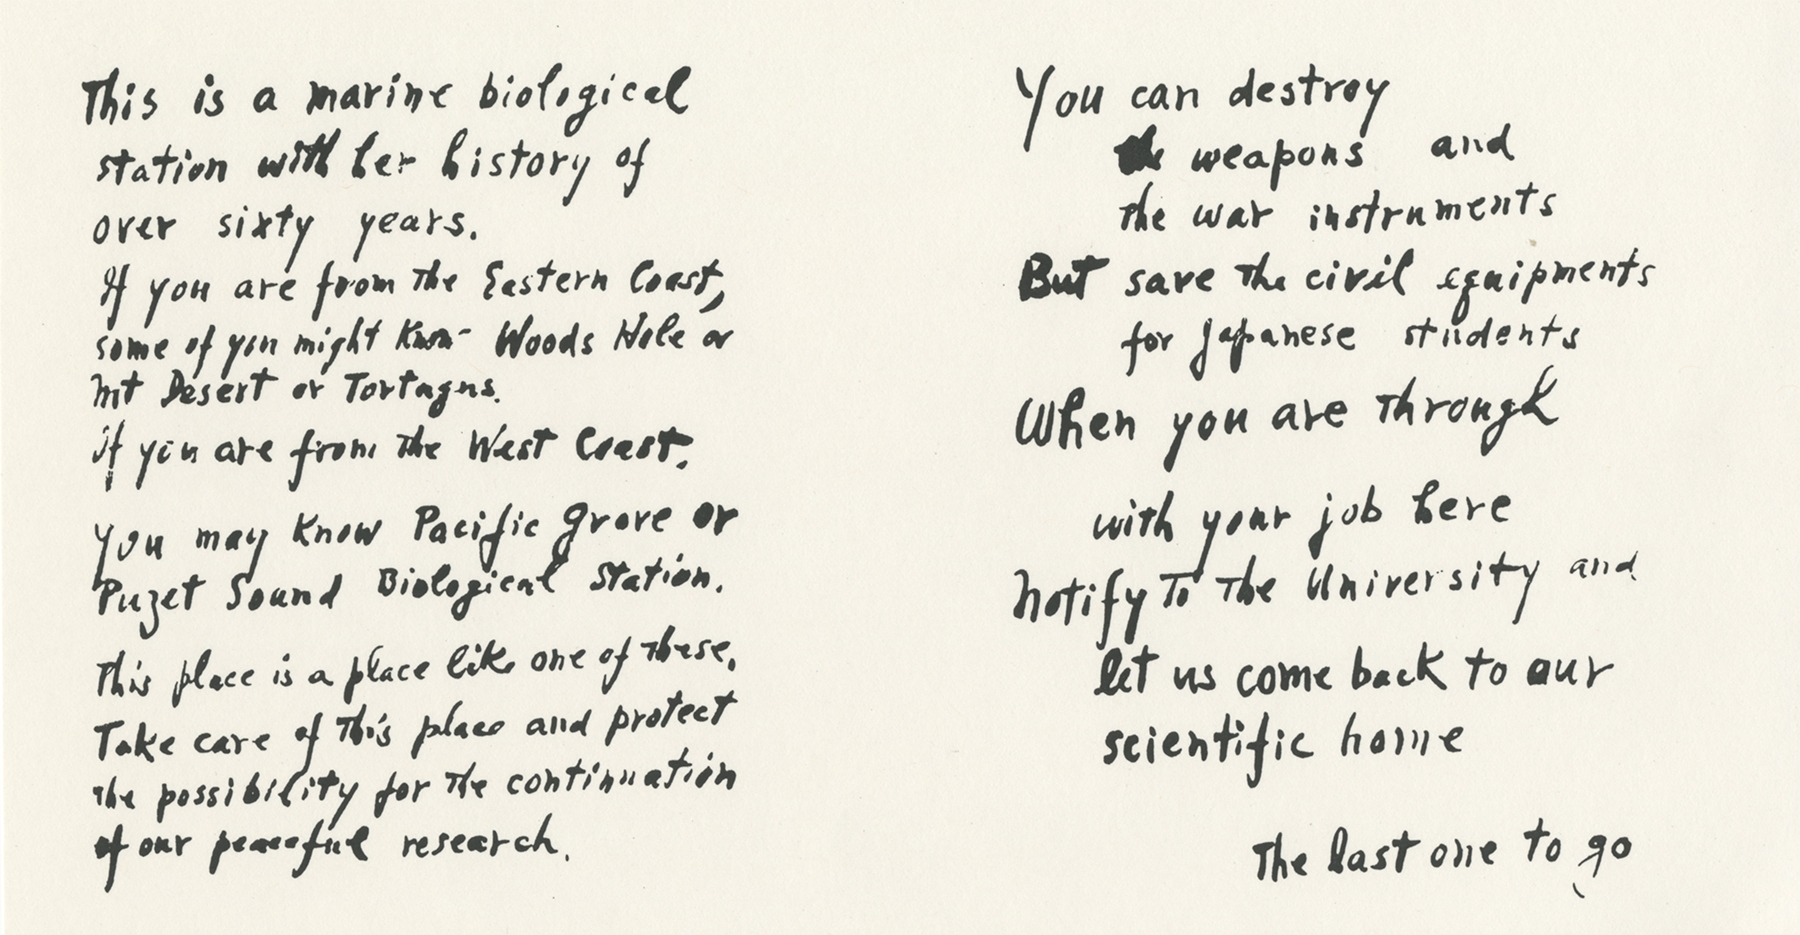 This is a marine biological
station with her history of
over sixty years.
If you are from the Eastern Coast,
some of you might know Woods Hole or
Mt Desert or Tortugas.
if you are from the West Coast.
you may know Pacific Grove or
Puget Sound Biological Station.
This place is a place like one of these.
Take care of this place and protect
the possibility for the continuation
of our peaceful research.
You can destroy
weapons and
the war instruments
But save the civil equipments
for Japanese students
When you are through
with your job here
Notify to the University and
let us come back to our
scientific home
The last one to go